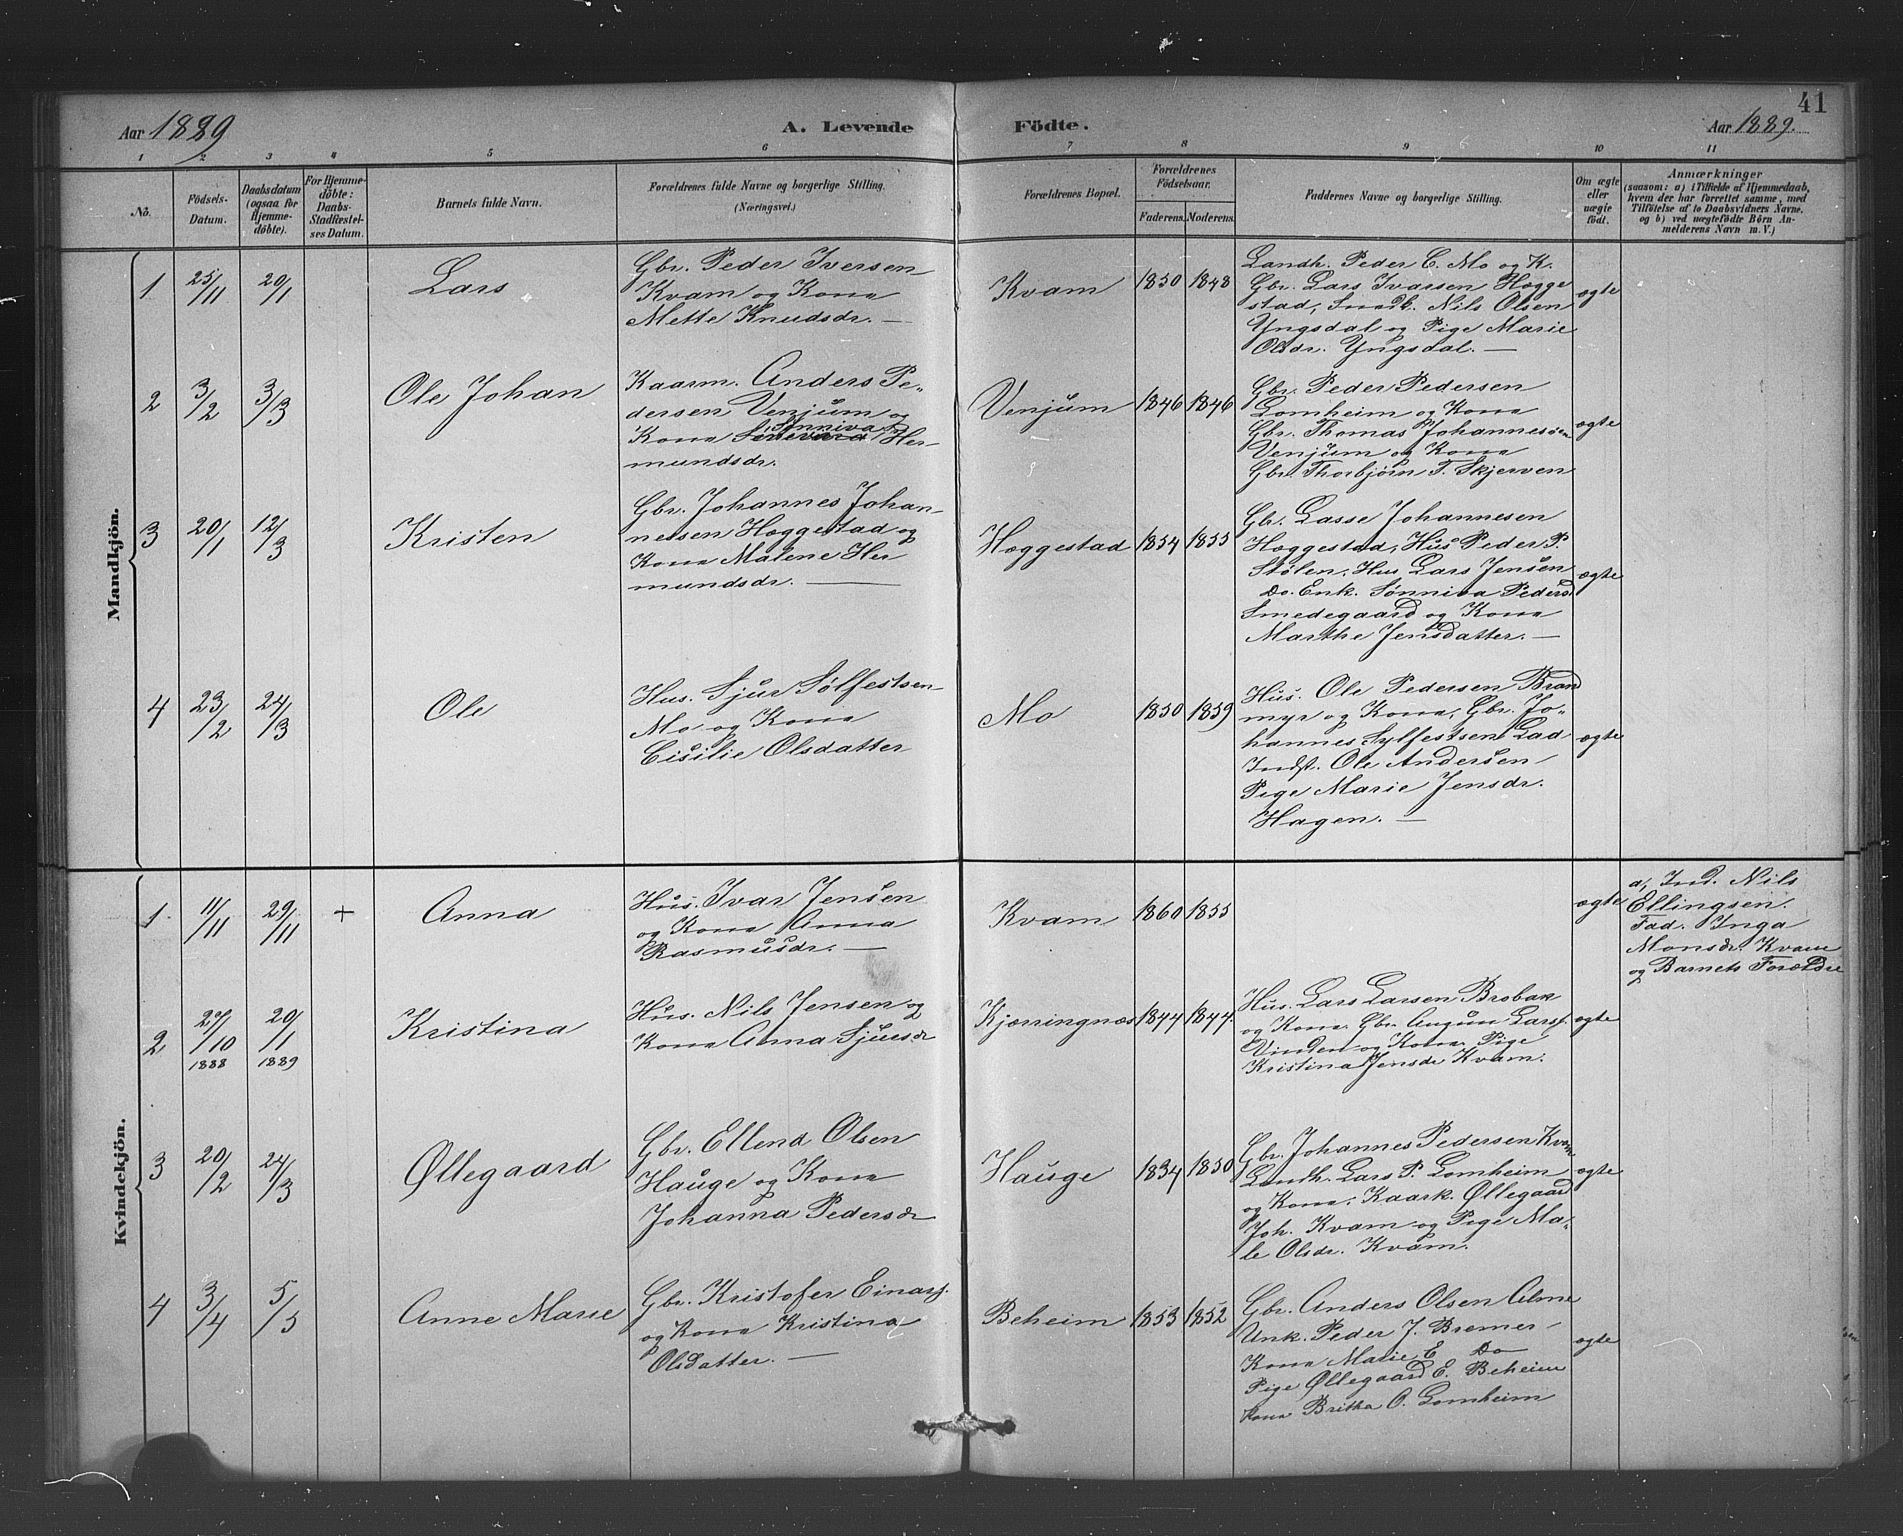 41
Aar 1889 A. Levende Födte. Aar 1889.
1 2 3 4 5 6 7 8 9 10 11
No.
Födsels-
Datum.
Daabsdatum
(ogsaa for
Hjemme-
döbte).
For Hjemme-
döbte:
Daabs-
Stadfæstel-
ses Datum.
Barnets fulde Navn.
Forældrenes fulde Navne og borgerlige Stilling.
(Næringsvei.)
Forældrenes Bopæl.
Forældrenes
Födselsaar.
Faderens. Moderens.
Faddernes Navne og borgerlige Stilling.
Om ægte
eller
uægte
födt.
Anmærkninger
(saasom: a) i Tilfælde af Hjemmedaab,
hvem der har forrettet samme, med
Tilföielse af to Daabsvidners Navne,
og b) ved uægtefödte Börn An-
melderens Navn m. V.)
Mandkjön.
1 25/11 20/1 Lars
Gbr. Peder Iversen
Kvam og Kona
Mette Knudsdr. —
Kvam 1850 1848
Landh. Peder C. Mo og K.
Gbr. Lars Ivarsen Hægge
stad, Smdk. Nils Olsen
Yngsdal og Pige Marie
Olsdr. Yngsdal. —
ægte
2 3/2 3/3 Ole Johan
Kaarm. Anders Pe-
dersen Venjum og
Sønniva
Kona Her-
mundsdr.
Venjum 1846 1846
Gbr. Peder Pedersen
Lomheim og Kona
Gbr. Thomas Johannessen
Venjum og Kona
Gbr. Thorbjørn T. Skjerven
ægte
3 20/1 12/3 Kristen
Gbr. Johannes Johan-
nesen Hæggestad og
Kona Malene Her
mundsdr. —
Hæggestad 1854 1855
Gbr. Lasse Johannesen
Hæggestad, Hus Peder P.
Stølen. Hus Lars Jensen
Do. Enk. Sønniva Pedersd
Smedegaard og Kona
Marthe Jensdatter. —
ægte
4 23/2 24/3 Ole
Hus. Sjur Sølfestsen
Mo og Kona
Cisilie Olsdatter
Mo 1850 1859
Hus. Ole Pedersen Brand
myr og Kona, Gbr. Jo-
hannes Sylfestsen Lad
Indst. Ole Andersen
Pige Marie Jensdr.
Hagen. —
ægte
Kvindekjön.
1 11/11 29/11 + Anna
Hus. Ivar Jensen
og Kona Anna
Rasmusdr. —
Kvam 1860 1855
ægte
a, Ind. Nils
Ellingsen.
Fad. Inga
Monsdr. Kvam
og Barnets Forældre
2 27/10 1888 20/1 1889 Kristina
Hus. Nils Jensen og
Kona Anna Sjursdr
Kjæringnæs 1844 1844.
Hus. Lars Larsen Brobak
og Kona. Gbr. Augun Larss.
Vinden og Kona. Pige
Kristina Jensdr Kvam.
ægte
3 20/2 24/3 Øllegaard
Gbr. Ellend Olsen
Hauge og Kona
Johanna Pedersdr
Hauge 1834 1850
Gbr. Johannes Pedersen Kvam
Landh. Lars P. Lomheim
og Kona, Kaark. Øllegaard
Joh. Kvam og Pige Ma-
le Olsdr. Kvam.
ægte
4 3/4 5/5 Anne Marie
Gbr. Kristofer Einars.
og Kona Kristina
Olsdatter. —
Beheim 1853 1852
Gbr. Anders Olsen Alme
Unk. Peder J. Bremer
Kona Marie E Do
Pige Øllegaard E. Beheim
Kona Britha O. Lomheim
ægte